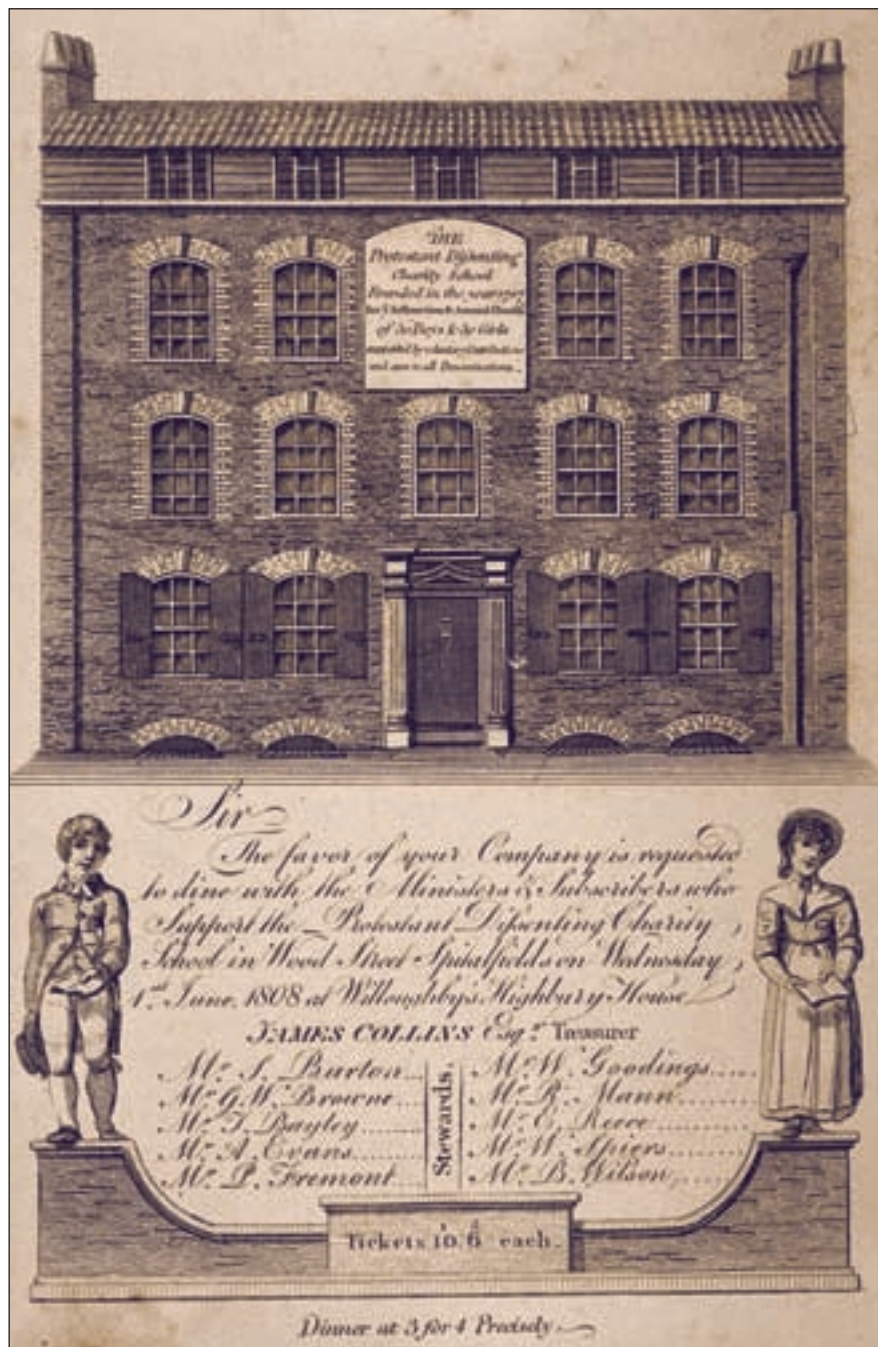 THE
Protestant Dissenting
Charity School
Founded in the year
of 30 Boys & 30 Girls
supported by voluntary Contributions
and open to all Denominations
Sir
The favor of your Company is requested
to dine with the Ministers & Subscribers who
Support the Protestant Dissenting Charity
School in Wood Street Spitalfields on Wednesday
1st June, 1808 at Willoughby's Highbury House
JAMES COLLINS Esqr. Treasurer
Stewards.
Mr. S. Burton
Mr. G. W. Browne
Mr. T. Bayley
Mr. A. Evans
Mr. P. Fremont
Mr. W. Goodings
Mr. R. Mann
Mr. E. Reeve
Mr. W. Spiers
Mr. B. Wilson
Tickets 10s. 6d each.
Dinner at 3 for 4 Precisely